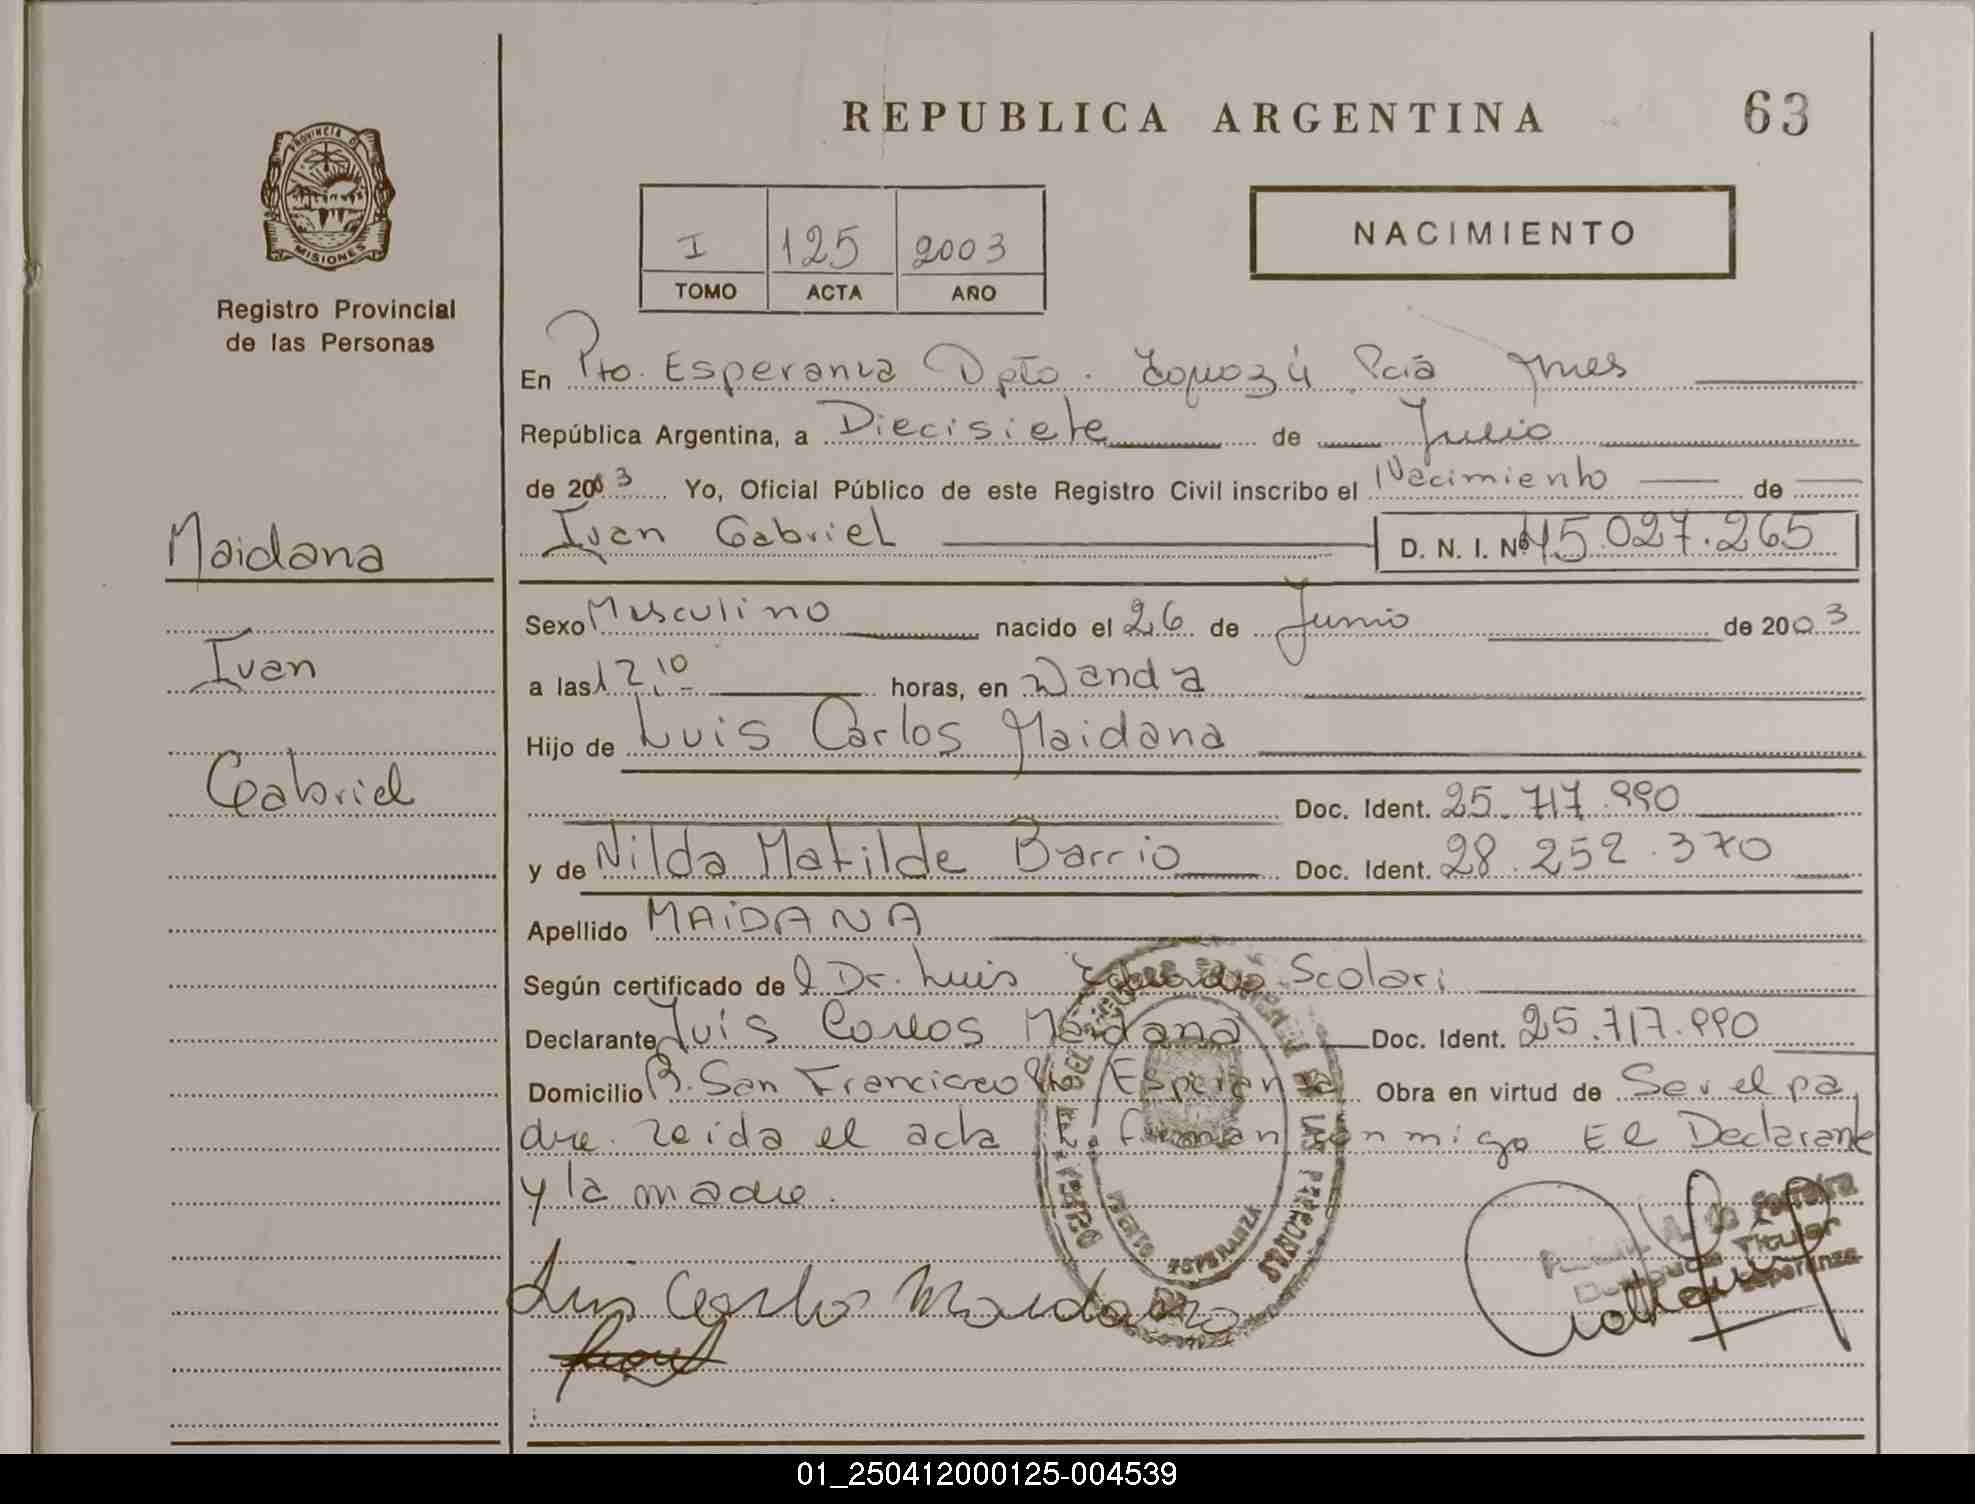 REPUBLICA ARGENTINA
63
PROVINCIA DE
MISIONES
Registro Provincial
de las Personas
I 125 2003
TOMO ACTA AÑO
NACIMIENTO
En Pto. Esperanza Dpto. Iguazú Pcia Mnes
República Argentina, a Diecisiete de Julio
de 2003 Yo, Oficial Público de este Registro Civil inscribo el Nacimiento de
Ivan Gabriel D. N. I. Nº 45.027.265
Maidana
Ivan
Gabriel
Sexo Masculino nacido el 26 de Junio de 2003
a las 12,10 horas, en Wanda
Hijo de Luis Carlos Maidana
Doc. Ident. 25.717.990
y de Nilda Matilde Barrio Doc. Ident. 28.252.370
Apellido MAiDANA
Según certificado de l Dr. Luis Eduardo Scolari
Declarante Luis Carlos Maidana Doc. Ident. 25.717.990
Domicilio B. San Francisco Pto Esperanza Obra en virtud de Ser el pa
dre. Leida el acta la firman conmigo El Declarante
y la madre.
REGISTRO DE LAS PERSONAS
PUERTO ESPERANZA
Ferreira
Titular
Esperanza
Luis Carlos Maidana
01_250412000125-004539